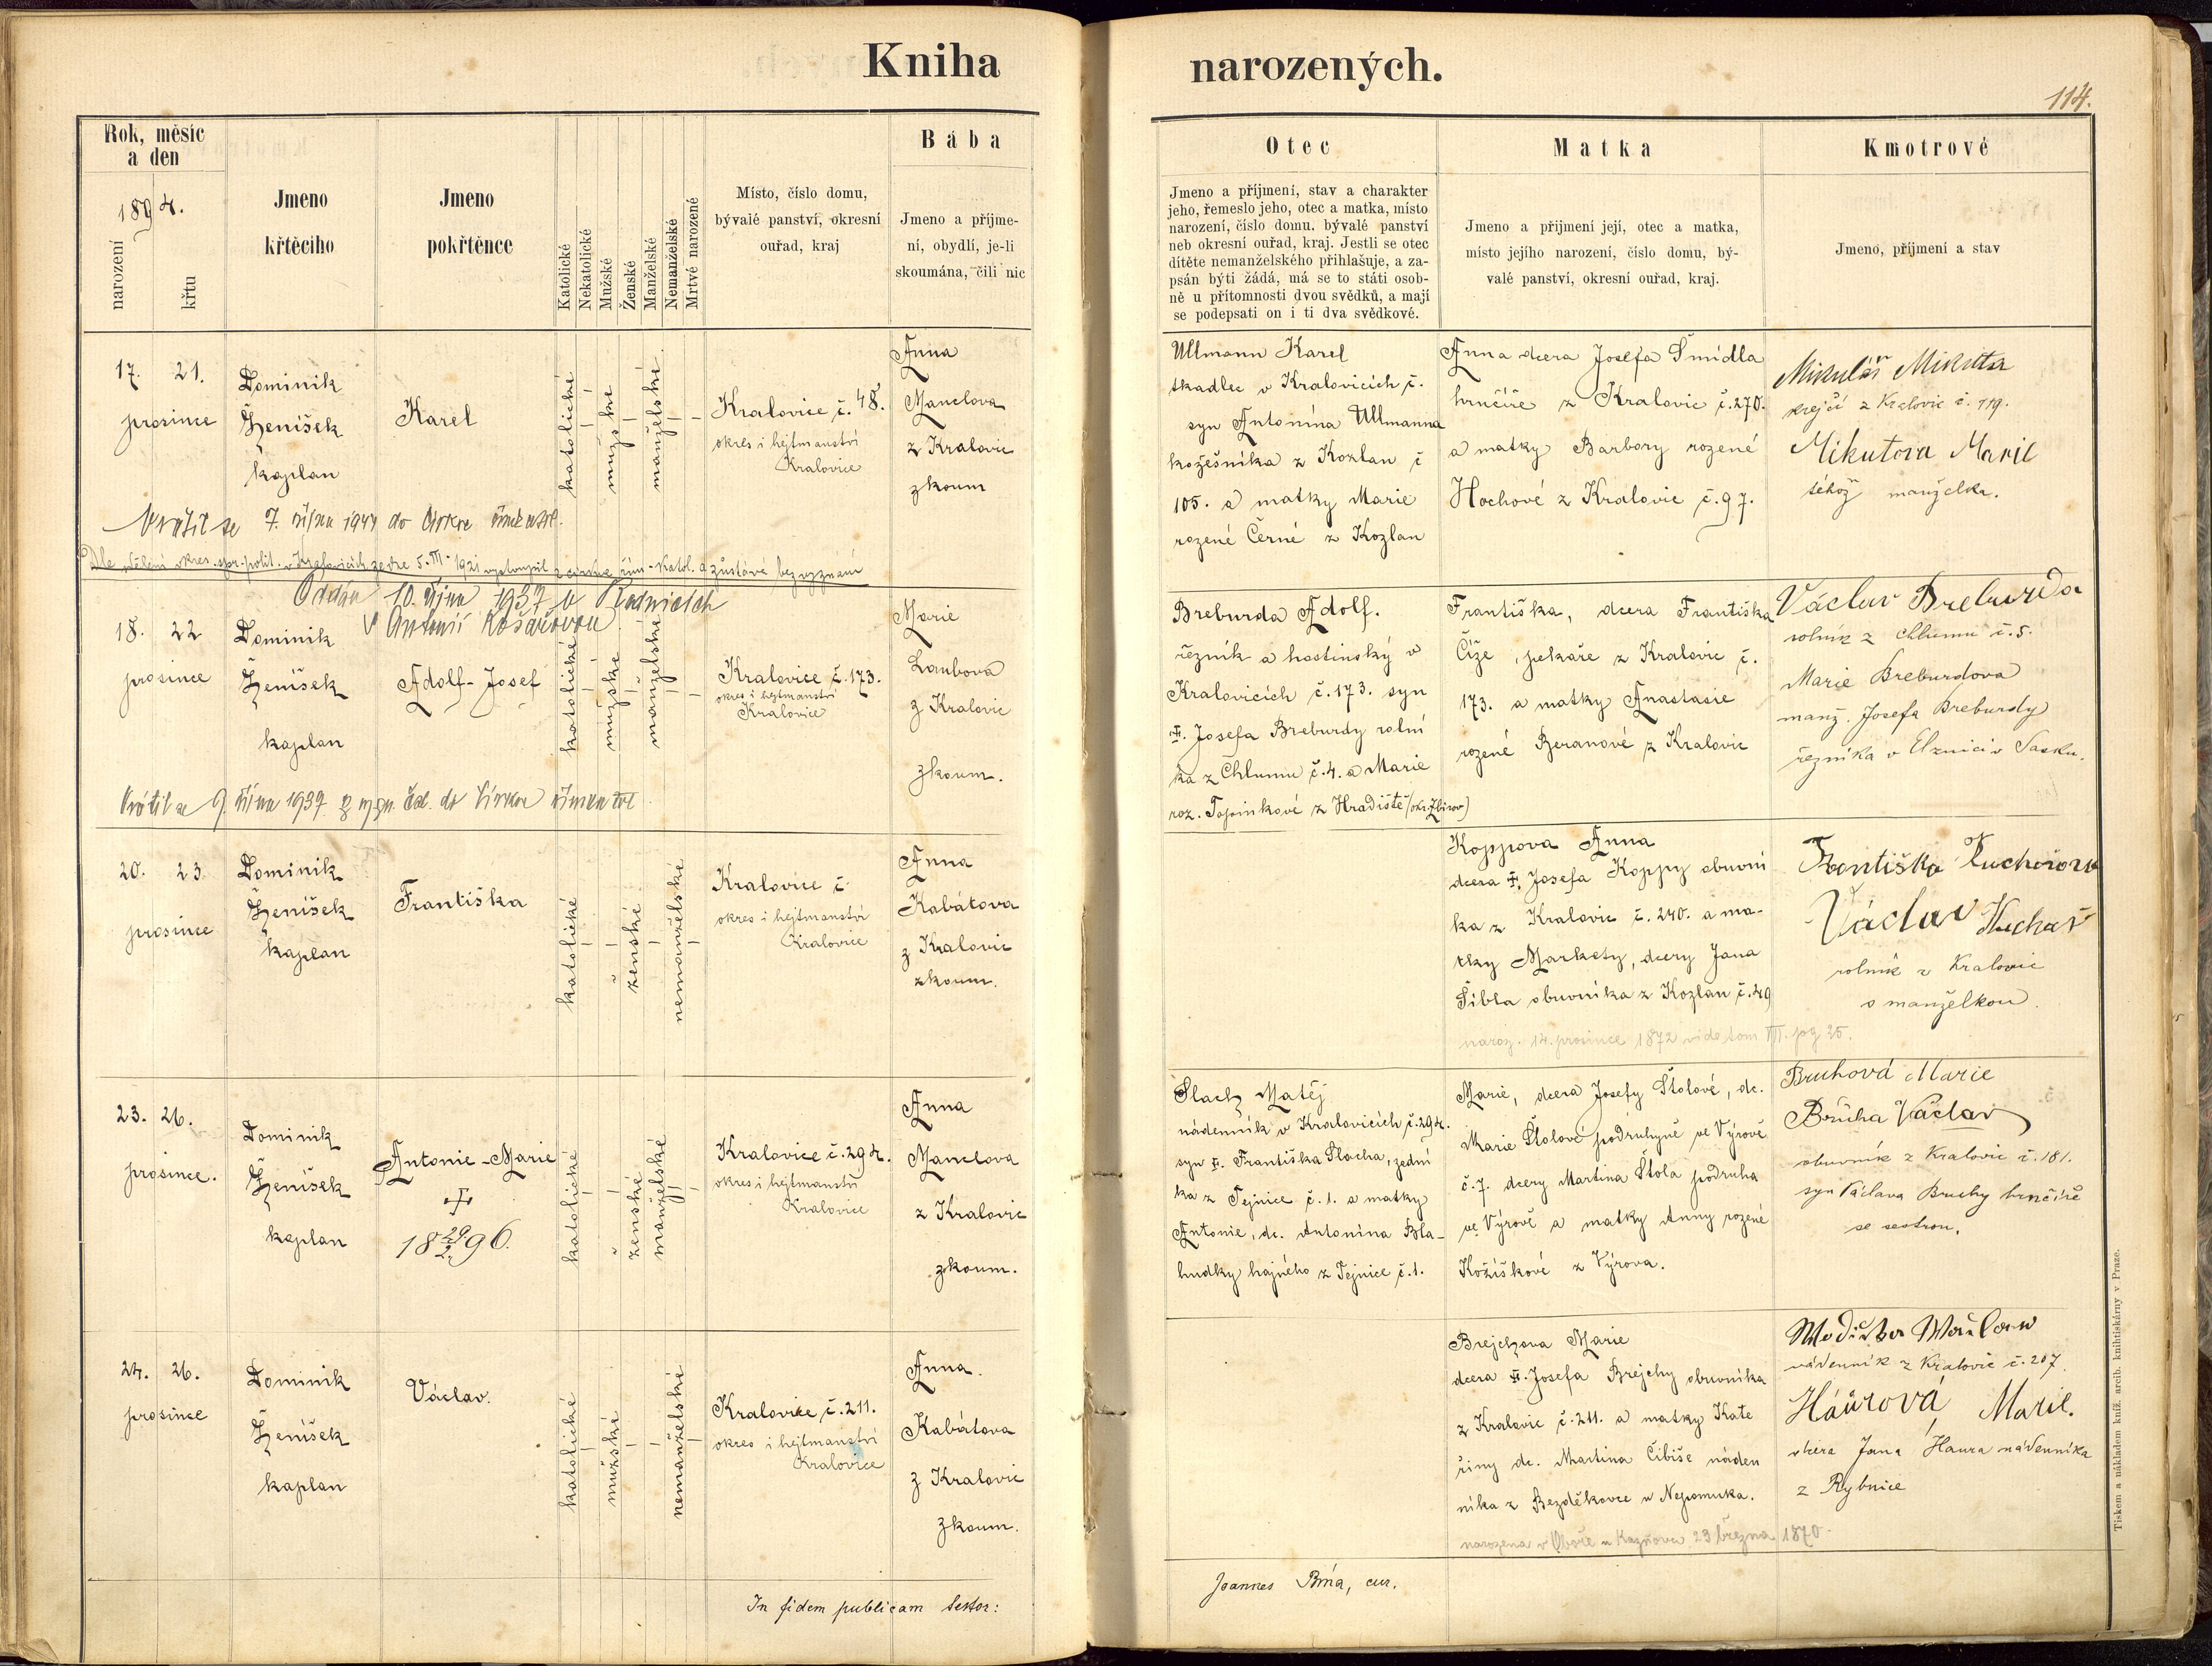 Kniha
narozených.
114.
Rok, měsíc
a den
1894.
narození
křtu
Jmeno
křtěcího
Jmeno
pokřtěnce
Katolické
Nekatolické
Mužské
Ženské
Manželské
Nemanželské
Mrtvě narozené
Místo, číslo domu,
bývalé panství, okresní
ouřad, kraj
Bába
Jmeno a příjme-
ní, obydlí, je-li
skoumána, čili nic
Otec
Jmeno a příjmení, stav a charakter
jeho, řemeslo jeho, otec a matka, místo
narození, číslo domu, bývalé panství
neb okresní ouřad, kraj. Jestli se otec
dítěte nemanželského přihlašuje, a za-
psán býti žádá, má se to státi osob-
ně u přítomnosti dvou svědků, a mají
se podepsati on i ti dva svědkové.
Matka
Jmeno a přijmení její, otec a matka,
místo jejího narození, číslo domu, bý-
valé panství, okresní ouřad, kraj.
Kmotrové
Jmeno, přijmení a stav
17. 21.
prosince
Dominik
Ženíšek
kaplan
Karel
katolické
mužské
manželské
Kralovice č. 48.
okres i hejtmanství
Kralovice
Anna
Manclova
z Kralovic
zkoum
Ullmann Karel
tkadlec v Kralovicích č.
syn Antonína Ullmanna
kožešníka z Kozlan č
105. a matky Marie
rozené Černé z Kozlan
Anna dcera Josefa Šmídla
hrnčíře z Kralovic č. 270.
a matky Barbory rozené
Hochové z Kralovic č. 97.
Mikuláš Mikuta
krejčí z Kralovic č. 119.
Mikutova Marie
téhož manželka.
Vrátil se 7. října 1944 do církve římkatol.
Dle sdělení okres. spr. polit. v Kralovicích ze dne 5. III. 1921 vystoupil z církve řím-katol. a zůstává bez vyznání
Oddán 10. října 1937 v Radnicích
s Antonií Košařovou
18. 22
prosince
Dominik
Ženíšek
kaplan
Adolf-Josef
katolické
mužské
manželské
Kralovice č. 173.
okres i hejtmanství
Kralovice
Marie
Laubova
z Kralovic
zkoum.
Breburda Adolf.
řezník a hostinský v
Kralovicích č. 173. syn
✝. Josefa Breburdy rolní
ka z Chlumu č. 4. a Marie
roz. Topinkové z Hradiště (okr. Zbirov)
Františka, dcera Františka
Číže, pekaře z Kralovic č.
173. a matky Anastasie
rozené Beranové z Kralovic
Václav Breburda
rolník z Chlumu č. 5.
Marie Breburdova
manž. Josefa Breburdy
řezníka v Elznici v Sasku.
Vrátil se 9. října 1937 z vyzn. čsl. do církve římkatol
20. 23
prosince
Dominik
Ženíšek
kaplan
Františka
katolické
ženské
nemanželské
Kralovice č.
okres i hejtmanství
Kralovice
Anna
Kabátova
z Kralovic
zkoum.
Koppova Anna
dcera ✝. Josefa Koppy obuvní
ka z Kralovic č. 240. a ma-
tky Markety, dcery Jana
Šibla obuvníka z Kozlan č. 49
naroz. 14. prosince 1872 vide tom VII. pag 25.
Františka Kuchařova
Václav Kuchař
rolník z Kralovic
s manželkou.
23. 26.
prosince.
Dominik
Ženíšek
kaplan
Antonie-Marie
✝
18 29/2 96.
katolické
ženské
manželské
Kralovice č. 294.
okres i hejtmanství
Kralovice
Anna
Manclova
z Kralovic
zkoum.
Slach Matěj
nádenník v Kralovicích č. 294.
syn ✝. Františka Slacha, zední
ka z Tejnice č. 1. a matky
Antonie, dc. Antonína Bla-
hudky hajného z Tejnice č. 1.
Marie, dcera Josefy Štolové, dc.
Marie Štolové podruhyně ve Výrově
č. 7. dcery Martina Štola podruha
ve Výrově a matky Anny rozené
Kožíškové z Výrova.
Bruhová Marie
Brůha Václav
obuvník z Kralovic č. 181.
syn Václava Bruhy hrnčíře
se sestrou.
24. 26.
prosince
Dominik
Ženíšek
kaplan
Václav.
katolické
mužské
nemanželské
Kralovice č. 211.
okres i hejtmanství
Kralovice
Anna.
Kabátova
z Kralovic
zkoum.
Brejchova Marie
dcera ✝. Josefa Brejchy obuvníka
z Kralovic č. 211. a matky Kate
řiny dc. Martina Čibiše náden
níka z Bezděkovce u Nepomuka.
narozena v Oboře u Kaznova 23 března 1870.
nádenník z Kralovic č. 207.
Háürová Marie.
dcera Jana Haura nádenníka
z Rybnice
In fidem publicam testor:
Joannes Brňa, cur.
Tiskem a nákladem kníž. arcib. knihtiskárny v Praze.